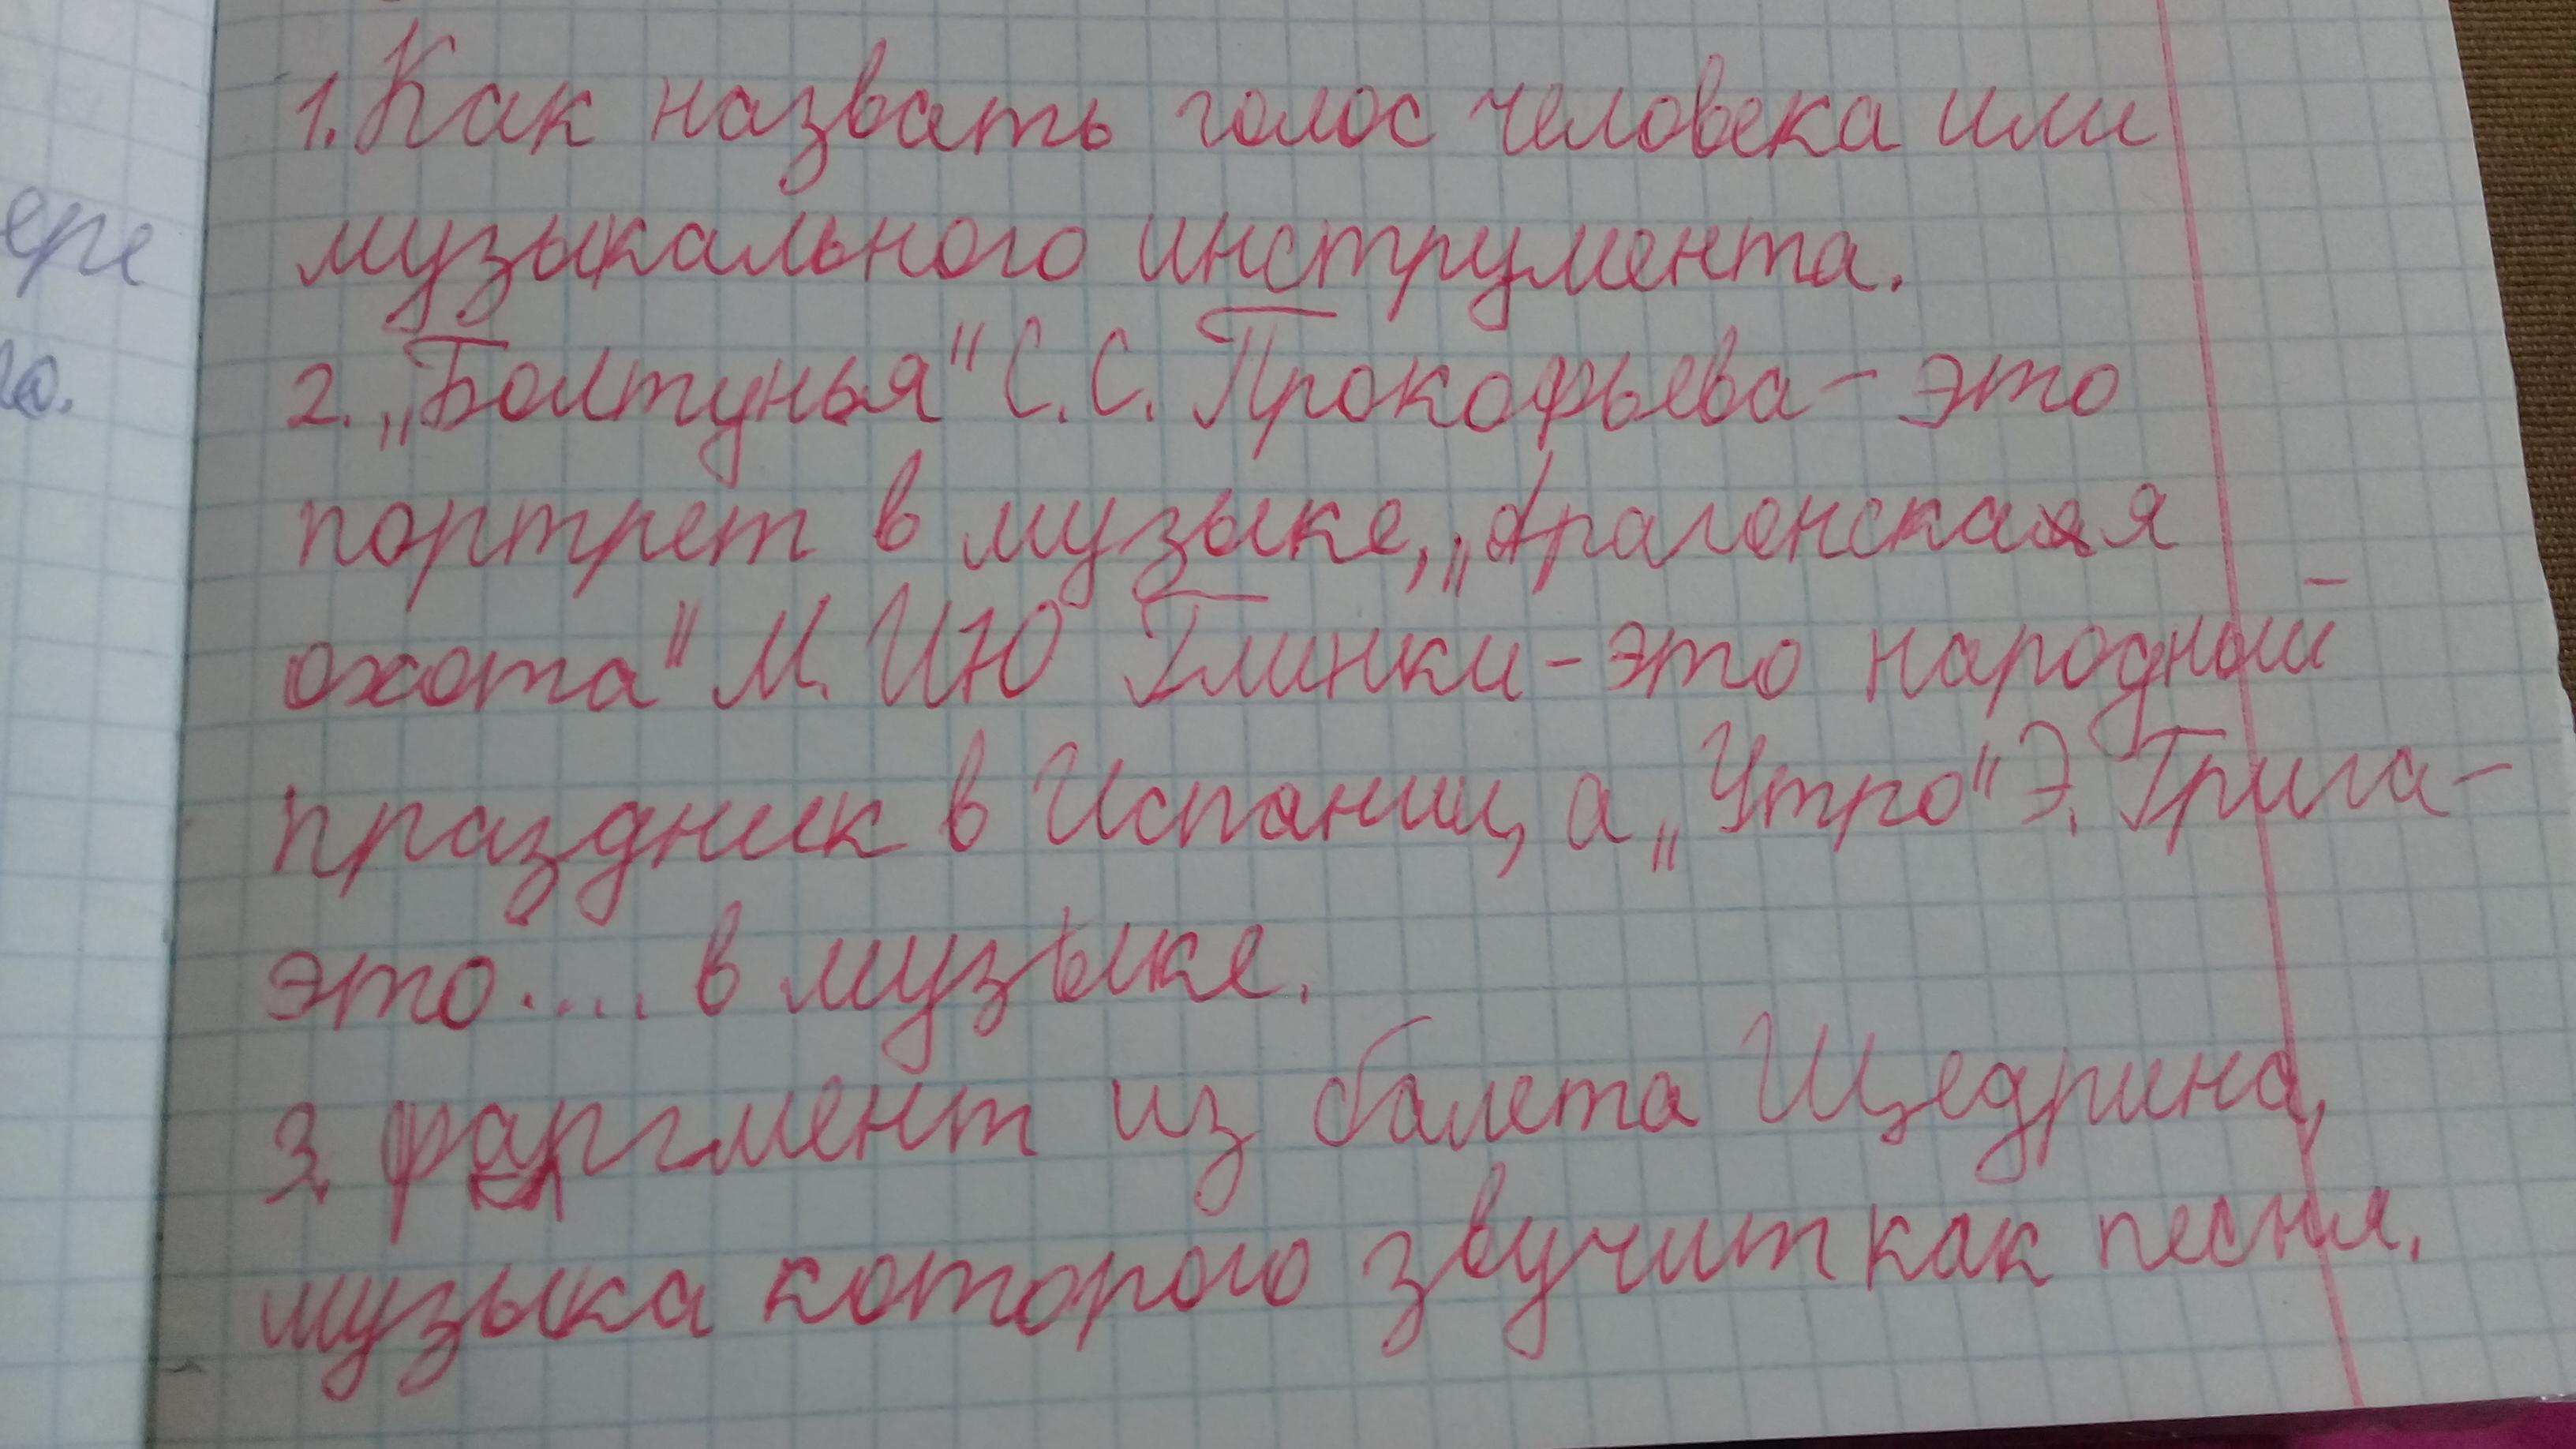 1. Как назвать голос человека или
музыкального инструмента.
2. „Болтунья" С. С. Прокофьева – это
портрет в музыке, „Арагенская
охота" М. И. Глинки – это народный
праздник в Испании, а „Утро" Э. Грига –
это .... в музыке.
3. фаргмент из балета Щедрина,
музыка которого звучит как песня.